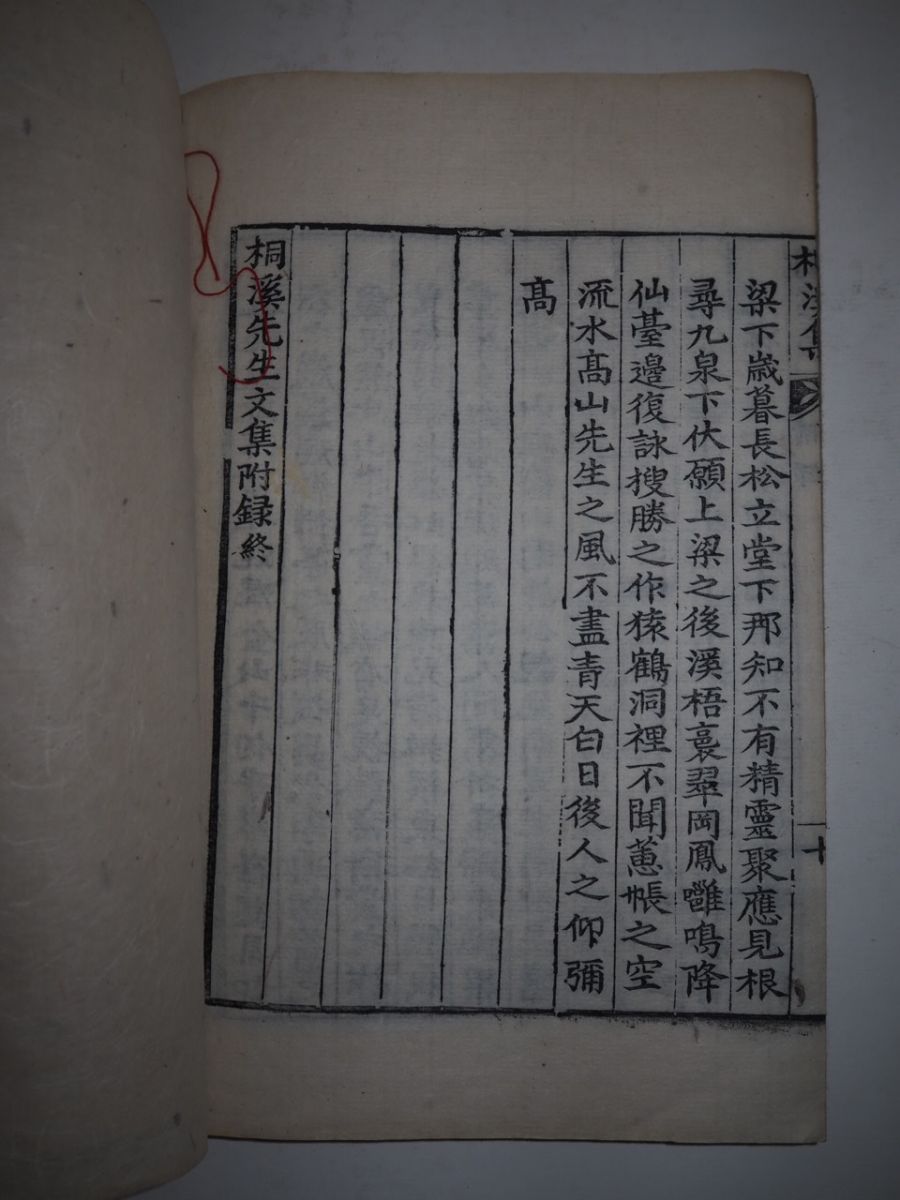 桐溪集
十
梁下歳暮長松立堂下那知不有精靈聚應見根
尋九泉下伏願上梁之後溪梧裛翠岡鳳雝鳴降
仙䑓邊復詠搜勝之作猿鶴洞裡不聞蕙帳之空
流水高山先生之風不盡青天白日後人之仰彌
高
桐溪先生文集附録終